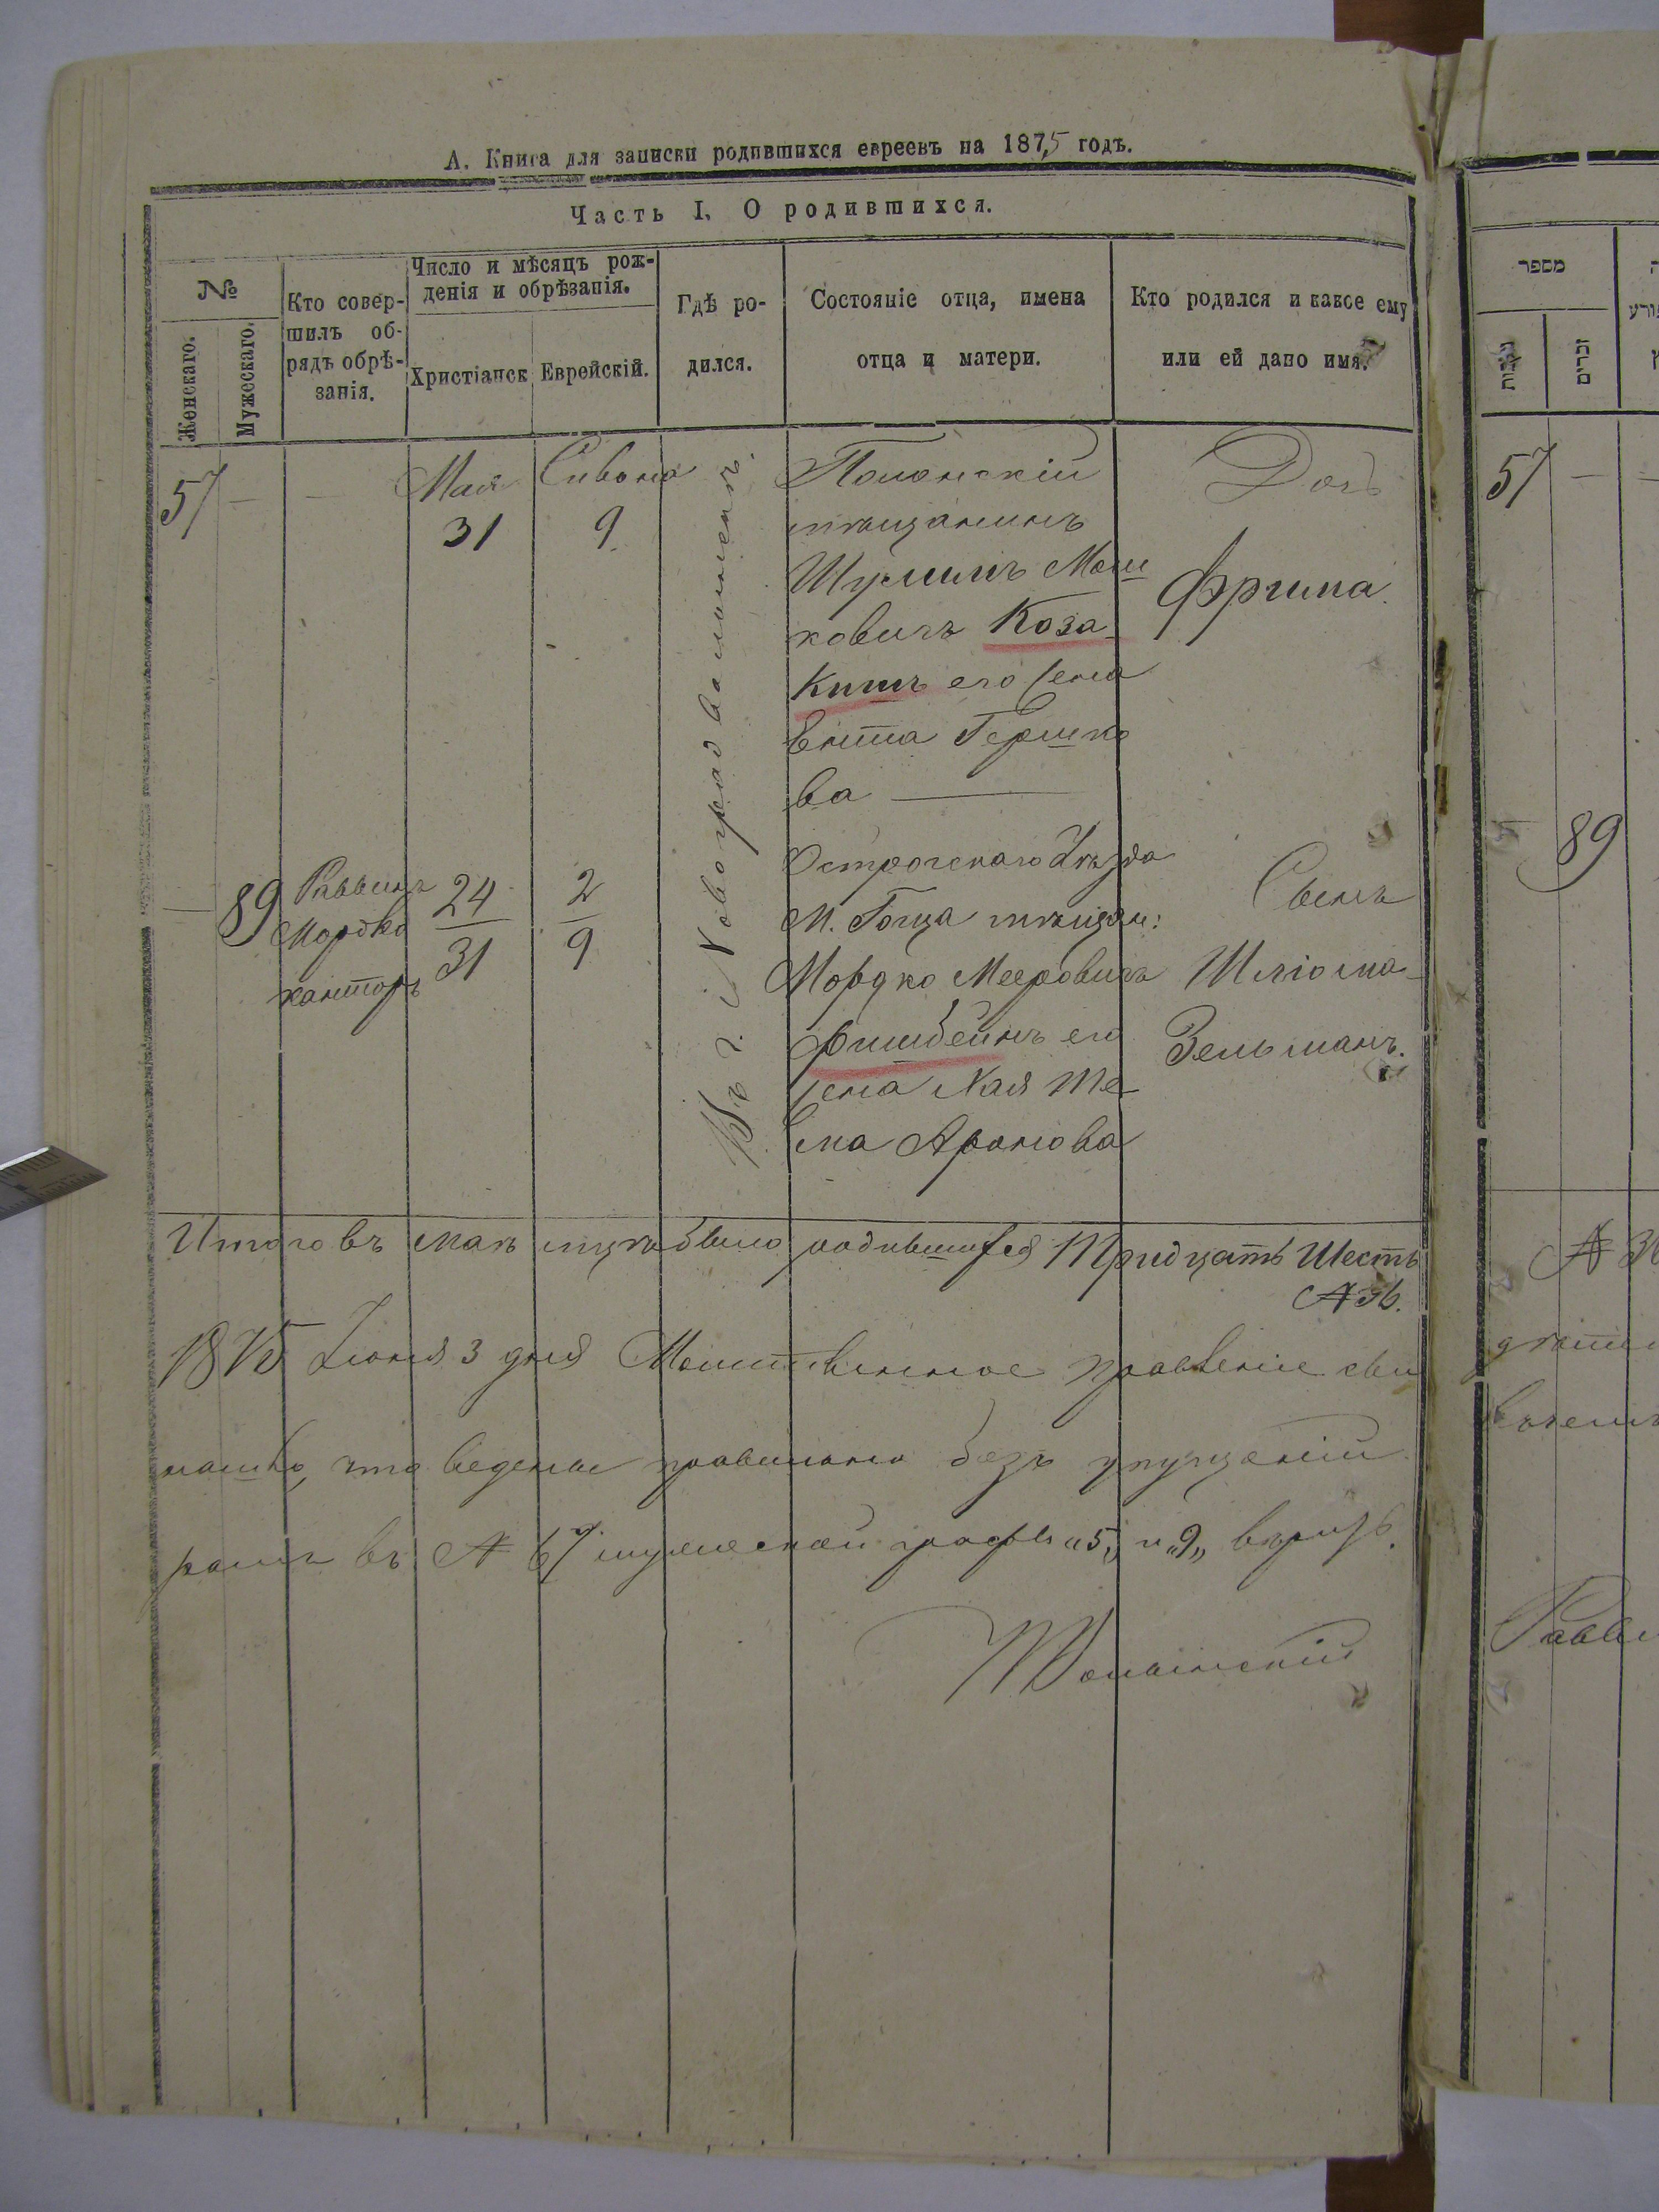 А. Книга для записки родившихся евреевъ на 1875 годъ.
Часть I. О родившихся.
№
Женскаго.
Мужескаго.
Кто совер-
шилъ об-
рядъ обрѣ-
занія.
Число и мѣсяцъ рож-
денія и обрѣзанія.
Христіанск
Еврейскій.
Гдѣ ро-
дился.
Состояніе отца, имена
отца и матери.
Кто родился и какое ему
или ей дано имя.
57
—
—
Мая
31
Сивона
9
Въ г. Новоградволынскѣ.
Полонскій
мѣщанинъ
Шулимъ Мош
ковичъ Коза
его жена
Гершко
ва
Дочь
Фрима.
—
89
Раввинъ
Мордко
канторъ
24
31
2
9
Острогскаго Уѣзда
М. Гоща мѣщан:
Мордко Мееровичъ
Фишбейнъ его
жена Хая
Аронова
Сынъ
Шліома-
Зельманъ.
Итого въ маѣ мцѣ было родившихся Тридцать Шесть
№ 36.
1875 Іюня 3 дня правленіе
что ведена правильно безъ упущеній
въ № 67 мужеской графы „5„ и „9„
מספר
נקבות
זכרים
57
—
89
№ 3